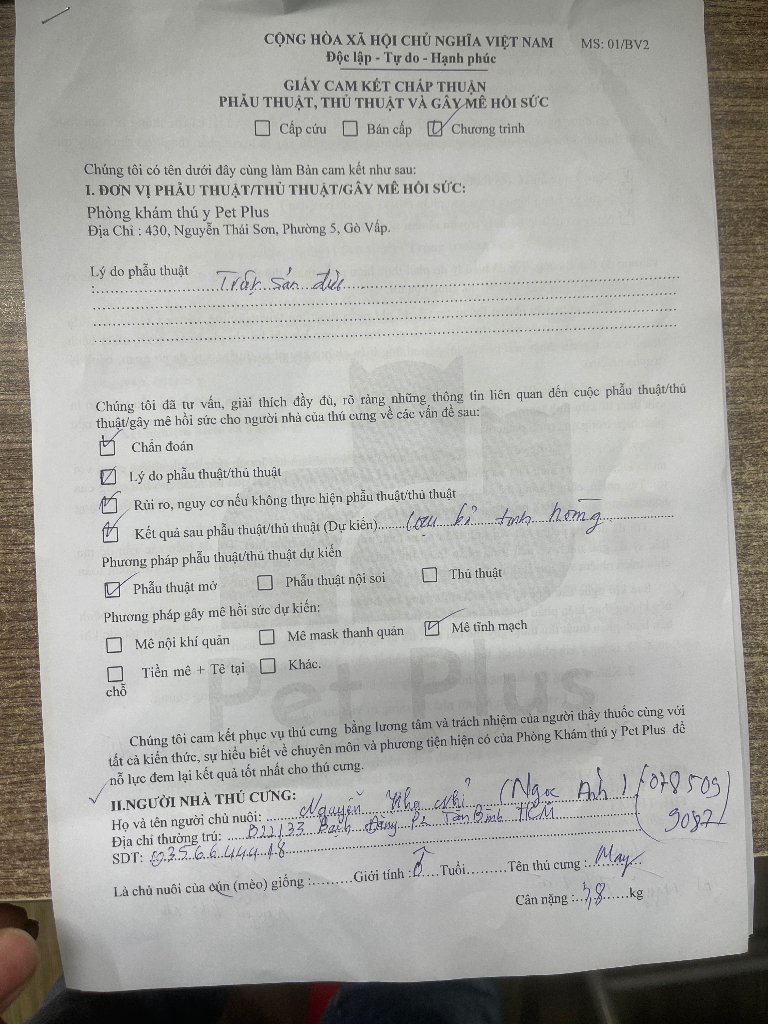 CỘNG HÒA XÃ HỘI CHỦ NGHĨA VIỆT NAM MS: 01/BV2
Độc lập - Tự do - Hạnh phúc
GIẤY CAM KẾT CHẤP THUẬN
PHẪU THUẬT, THỦ THUẬT VÀ GÂY MÊ HỒI SỨC
Cấp cứu Bán cấp Chương trình
Chúng tôi có tên dưới đây cùng làm Bản cam kết như sau:
I. ĐƠN VỊ PHẪU THUẬT/THỦ THUẬT/GÂY MÊ HỒI SỨC:
Phòng khám thú y Pet Plus
Địa Chỉ : 430, Nguyễn Thái Sơn, Phường 5, Gò Vấp.
Lý do phẫu thuật
: Triệt sản đực
Chúng tôi đã tư vấn, giải thích đầy đủ, rõ ràng những thông tin liên quan đến cuộc phẫu thuật/thủ
thuật/gây mê hồi sức cho người nhà của thú cưng về các vấn đề sau:
Chẩn đoán
Lý do phẫu thuật/thủ thuật
Rủi ro, nguy cơ nếu không thực hiện phẫu thuật/thủ thuật
Kết quả sau phẫu thuật/thủ thuật (Dự kiến) loại bỏ tinh hoàn
Phương pháp phẫu thuật/thủ thuật dự kiến
Phẫu thuật mở Phẫu thuật nội soi Thủ thuật
Phương pháp gây mê hồi sức dự kiến:
Mê nội khí quản Mê mask thanh quản Mê tĩnh mạch
Tiền mê + Tê tại Khác.
chỗ
Pet Plus
Chúng tôi cam kết phục vụ thú cưng bằng lương tâm và trách nhiệm của người thầy thuốc cùng với
tất cả kiến thức, sự hiểu biết về chuyên môn và phương tiện hiện có của Phòng Khám thú y Pet Plus để
nỗ lực đem lại kết quả tốt nhất cho thú cưng.
II.NGƯỜI NHÀ THÚ CƯNG:
Họ và tên người chủ nuôi: Nguyễn Nhi (Ngọc Anh) (078509
Địa chỉ thường trú: B22/33 Bạch Đằng P2 Tân Bình HCM 9087)
SDT: 0356644418
Là chủ nuôi của cún (mèo) giống : Giới tính : ♂ Tuổi Tên thú cưng : May
Cân nặng : 3,8 kg